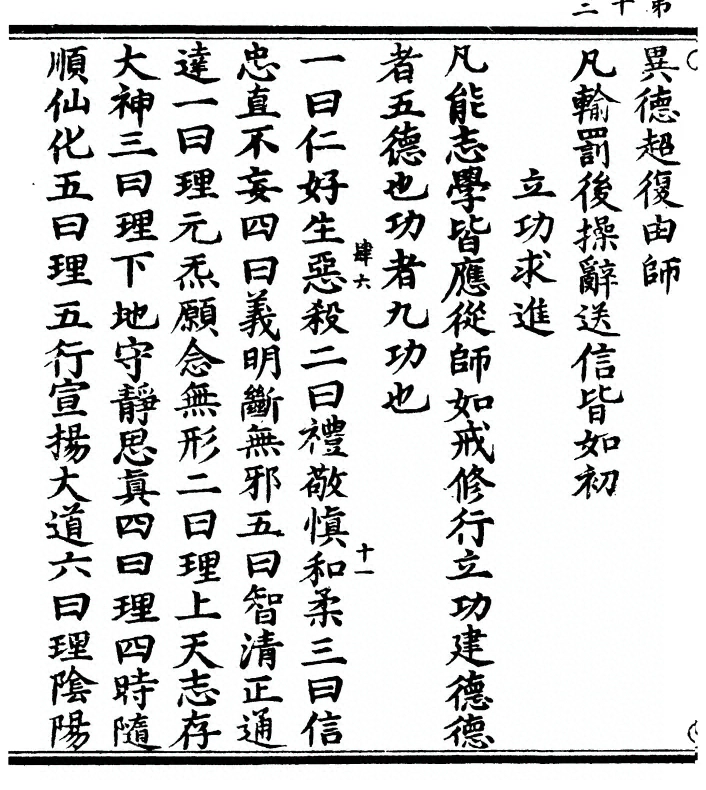 第十二
異德超復由師
凡輸罰後操辭送信皆如初
立功求進
凡能志學皆應從師如戒修行立功建德德
者五德也功者九功也
肆六
十一
一曰仁好生惡殺二曰禮敬慎和柔三曰信
忠直不妄四曰義明斷無邪五曰智清正通
達一曰理元炁願念無形二曰理上天志存
大神三曰理下地守靜思真四曰理四時隨
順仙化五曰理五行宣揚大道六曰理陰陽